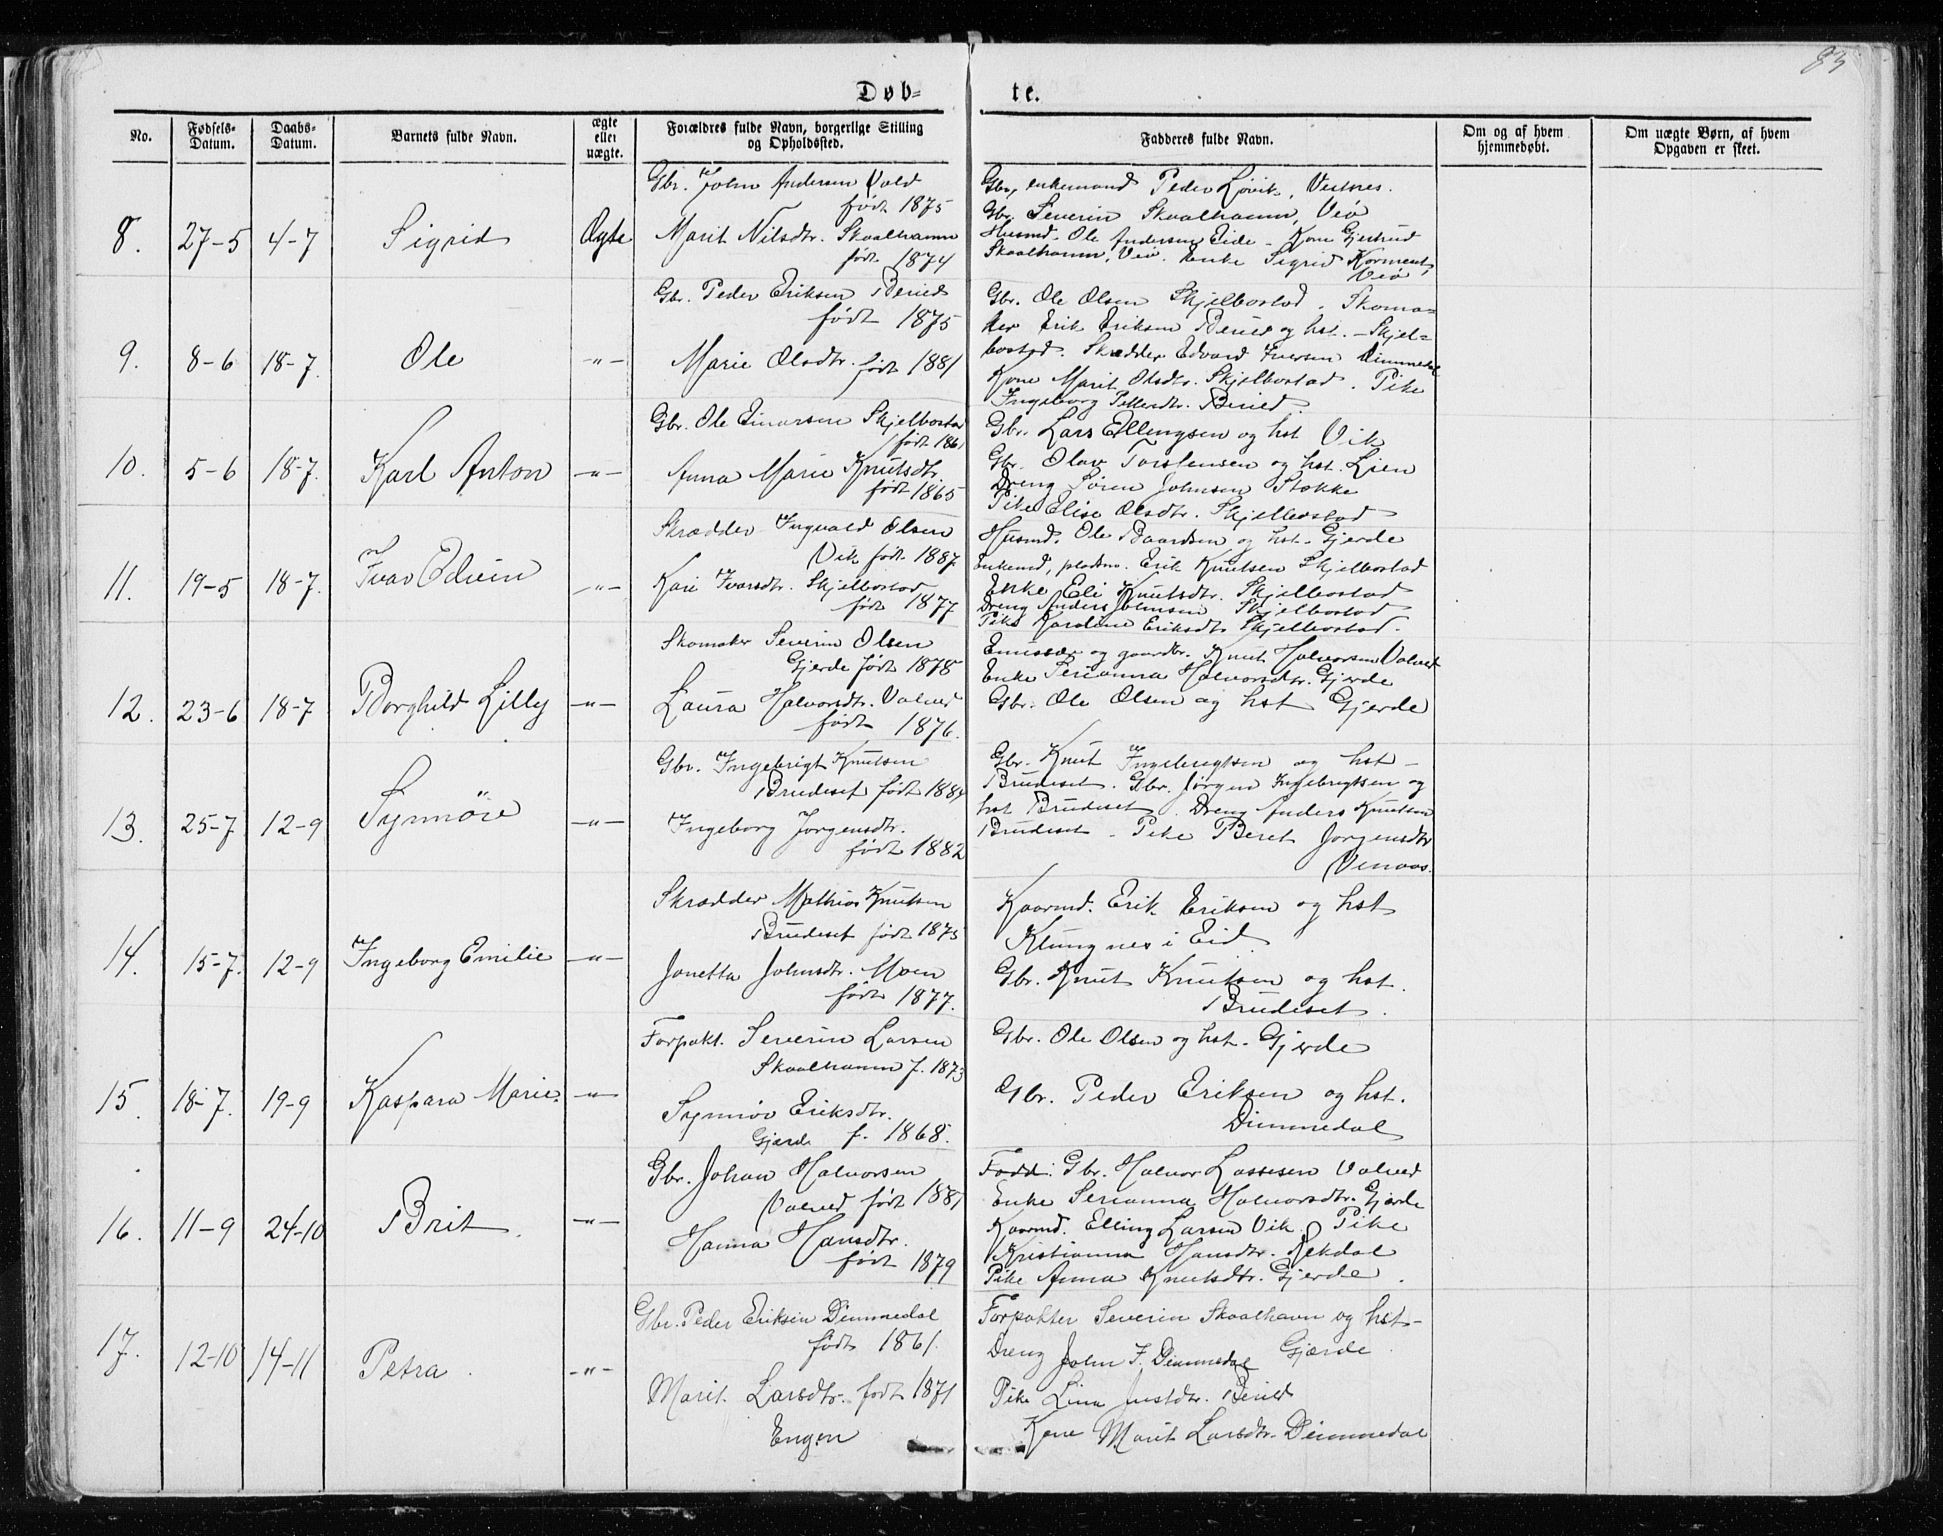 83
Døb- te.
No. Fødsels-Datum. Daabs-Datum. Barnets fulde Navn. ægte eller uægte. Forældres fulde Navn, borgerlige Stilling og Opholdssted. Fadderes fulde Navn. Om og af hvem hjemmedøbt. Om uægte Børn, af hvem Opgaven er skeet.
8. 27-5 4-7 Sigrid Ægte
Gbr. John Andersen Vold
født 1875
Marit Nilsdtr. Skaalhamn
født 1874
Gbr, enkemand Peder Løvik, Vestnes.
Gbr. Severin Skaalhamn, Veø
Husmd. Ole Andersen Eide - Kone Gjertrud
Skaalhamn, Veø. Enke Sigrid
Veø
9. 8-6 18-7. Ole -"-
Gbr. Peder Eriksen Beried
født 1875
Marie Olsdtr. født 1881
Gbr. Ole Olsen Skjelbostad. Skoma-
ker Erik Eriksen Beried og hst. - Skjel-
bostad. Skrædder Edvard Iversen Dimmedal
Kone Marit Olsdtr. Skjelbostad. Pike
Ingeborg Pettersdtr. Beried.
10. 5-6 18-7. Karl Anton -"-
Gbr. Ole Einarsen Skjelbostad
født 1861
Anna Marie Knutsdtr.
født 1865
Gbr. Lars Ellengsen og hst Vik
Gbr. Olav Torstensen og hst. Lien
Dreng Søren Johnsen Stokke
Pike Elise Olsdtr. Skjelbostad
11. 19-5 18-7. Ivar Edvin -"-
Skrædder Ingvald Olsen
Vik født 1887.
Kari Ivarsdtr. Skjelbostad
født 1877
Husmd. Ole Baardsen og hst. Gjerde
Enkemd, pladsm. Erik Knutsen Skjelbostad
Enke Eli Knutsdtr. Skjelbostad
Dreng Anders Johnsen Skjelbostad
Pike Karoline Eriksdtr. Skjelbostad.
12. 23-6 18-7 Borghild Lilly -"-
Skomaker Severin Olsen
Gjerde født 1878
Laura Halvorsdtr. Valved
født 1876.
Emissær og gaardbr. Knut Halvorsen Valved
Enke Serianna Halvorsdtr. Gjerde
Gbr. Ole Olsen og hst Gjerde
13. 25-7 12-9 Synnöve -"-
Gbr. Ingebrigt Knutsen
Brudeset født 1884
Ingeborg Jørgensdtr.
født 1882
Gbr. Knut Ingebrigtsen og hst -
Brudeset. Gbr. Jørgen Ingebrigtsen og
hst Brudeset. Dreng Anders Knutsen
Brudeset - Pike Beret Jørgensdtr
Venaas.
14. 15-7. 12-9 Ingeborg Emilie -"-
Skrædder Mathias Knutsen
Brudeset født 1875
Jonetta Johnsdtr. Moen
født 1877.
Kaarmd. Erik Eriksen og hst
Klungnes i Eid
Gbr. Knut Knutsen og hst.
Brudeset.
15. 18-7. 19-9 Kaspara Marie. -"-
Forpakt. Severin Larsen
Skaalhamn f. 1873
Synnöv Eriksdtr.
Gjærde f. 1868.
Gbr. Ole Olsen og hst. Gjerde
Gbr. Peder Eriksen og hst.
Dimmedal
16. 11-9 24-10 Brit. -"-
Gbr. Johan Halvorsen
Valved født 1881
Hanna Hansdtr.
født 1879
Fadd: Gbr. Halvor Lassesen Valved
Enke Serianna Halvorsdtr. Gjerde
Kaarmd. Elling Larsen Vik. Pike
Kristianna Hansdtr. Rekdal
Pike Anna Knutsdtr. Gjerde.
17. 12-10 14-11 Petra. -"-
Gbr. Peder Eriksen Dimmedal
født 1861.
Marit Larsdtr. født 1871
Engen
Forpakter Severin Skaalhavn og hst -
Gjærde.
Dreng John J. Dimmedal
Pike Lina Justdtr. Beried
Kone Marit Larsdtr. Dimmedal